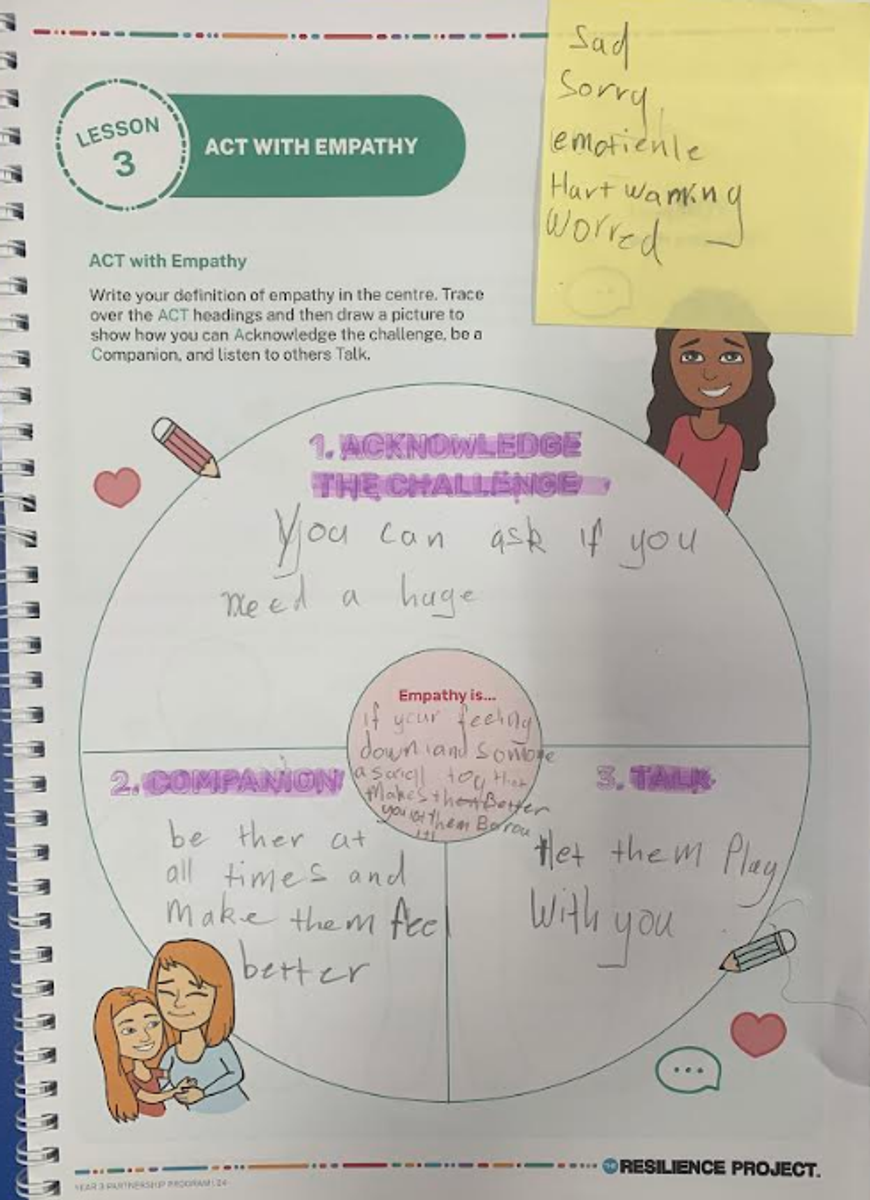 Sad
Sorry
emotienle
Hart warming
Worred
LESSON
3
ACT WITH EMPATHY
ACT with Empathy
Write your definition of empathy in the centre. Trace
over the ACT headings and then draw a picture to
show how you can Acknowledge the challenge, be a
Companion, and listen to others Talk.
1. ACKNOWLEDGE
THE CHALLENGE
You can ask if you
need a huge
Empathy is...
if your feeling
down and
a toy that
Makes them Better
you let them Borou
it!
2. COMPANION
be ther at
all times and
Make them feel
better
3. TALK
let them Play
With you
YEAR 3 PARTNERSHIP PROGRAM | 24
THE RESILIENCE PROJECT.